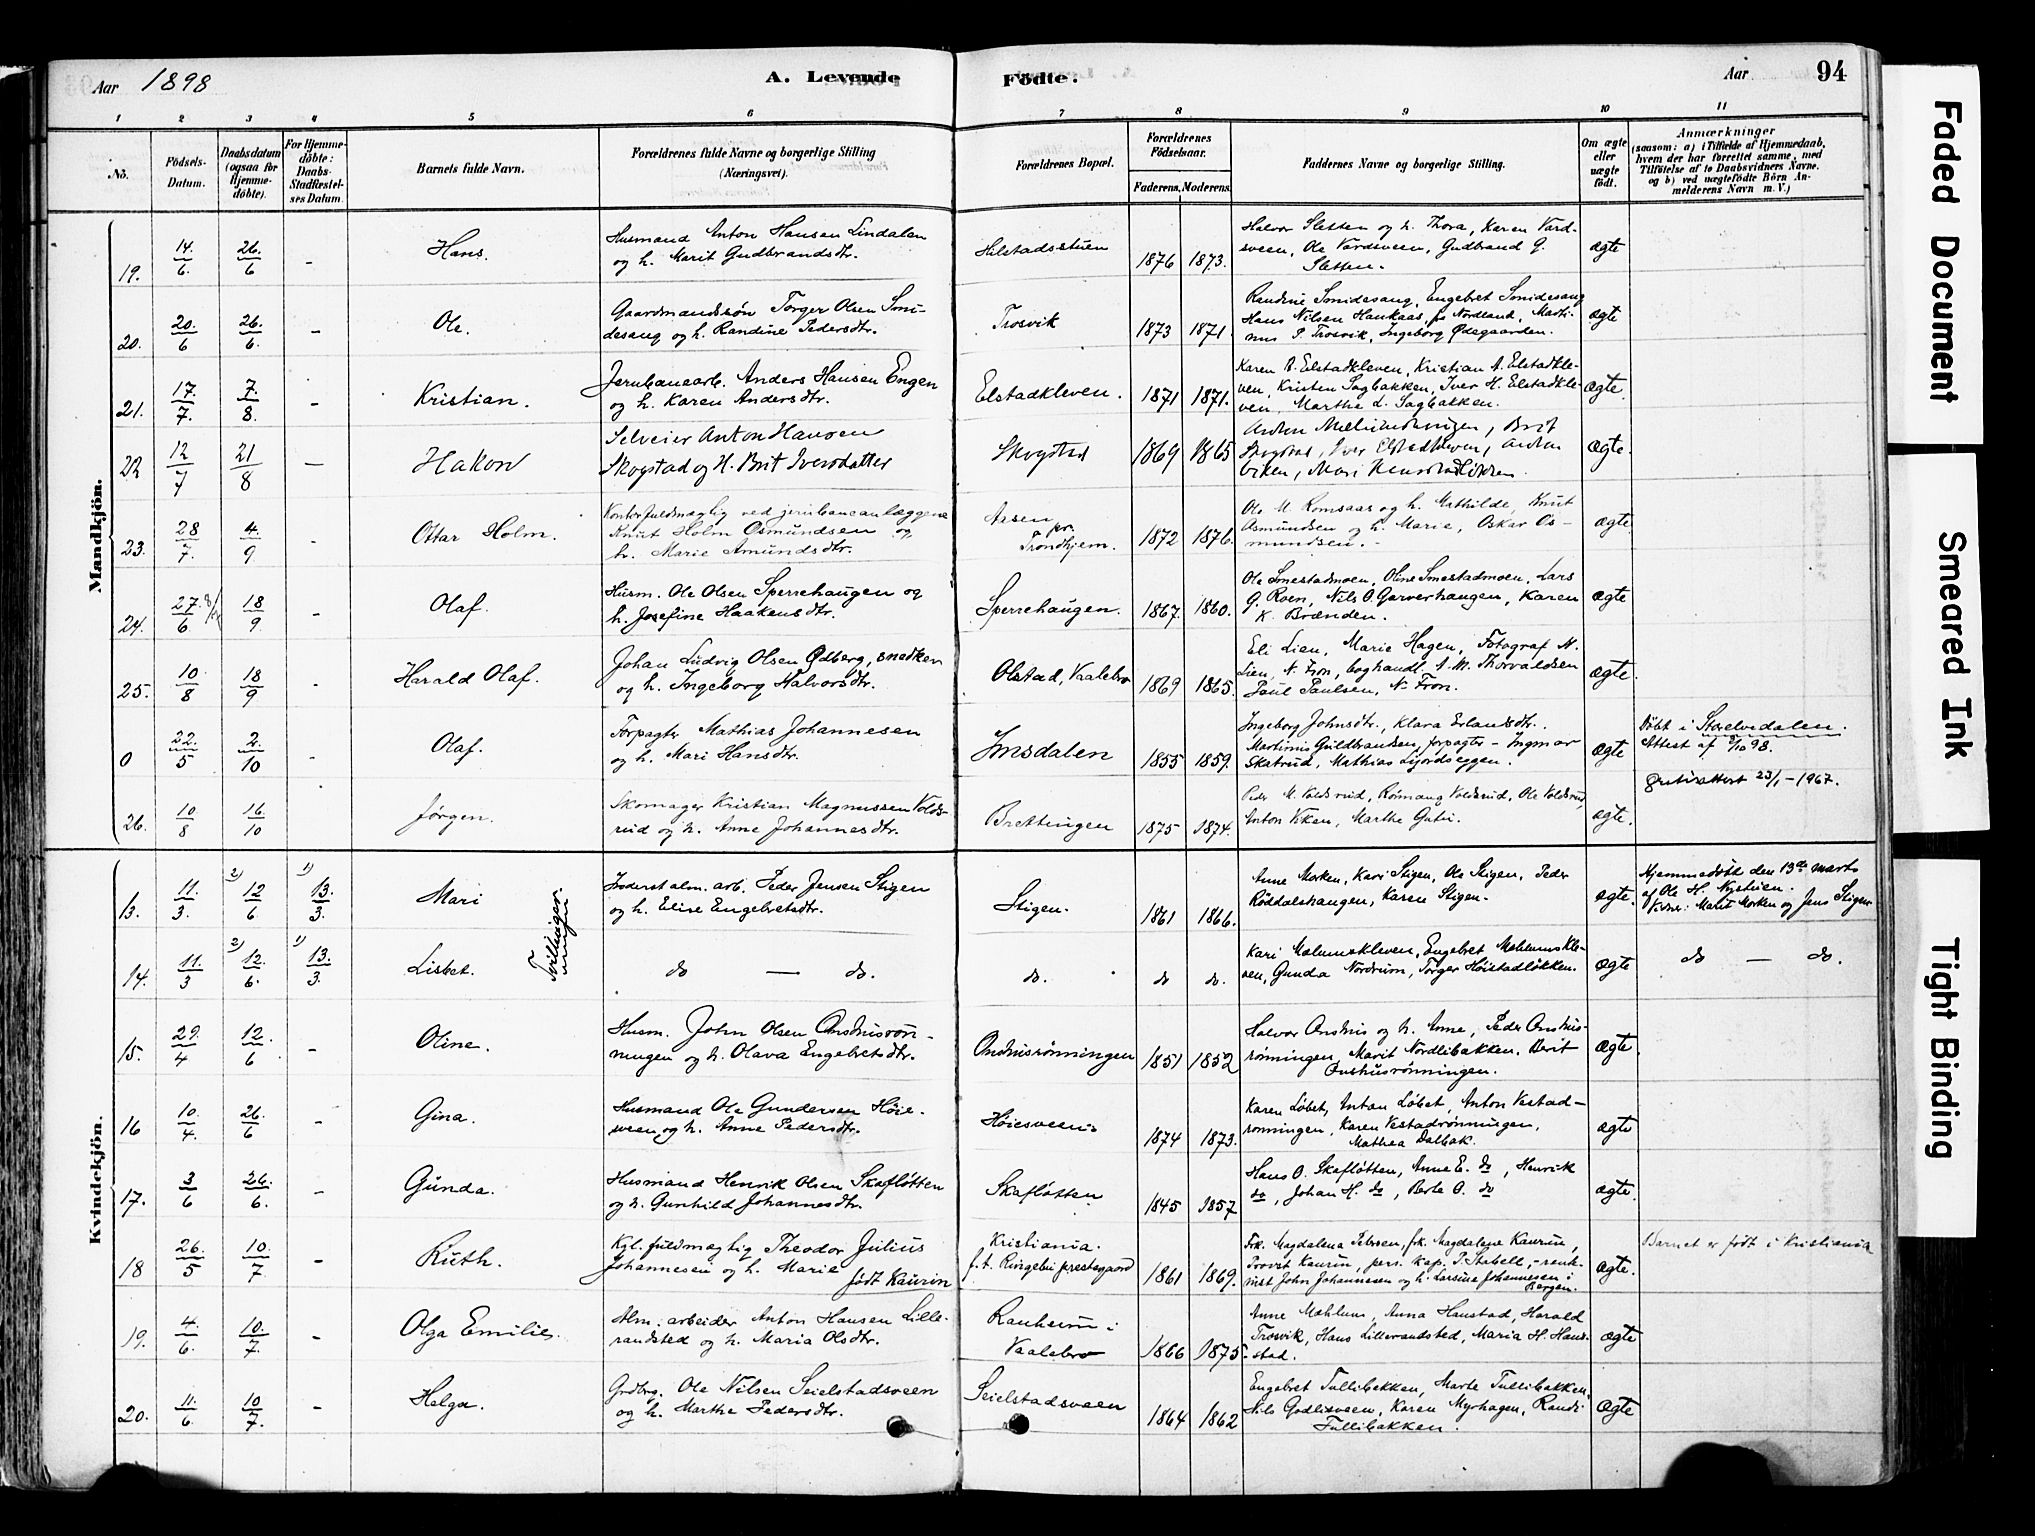 Aar 1898
A. Levende
Födte.
Aar
94
1 2 3 4 5 6 7 8 9 10 11
No.
Födsels-
Datum.
Daabsdatum
(ogsaa for
Hjemme-
döbte).
For Hjemme-
döbte:
Daabs-
Stadfæstel-
ses Datum.
Barnets fulde Navn.
Forældrenes fulde Navne og borgerlige Stilling
(Næringsvei).
Forældrenes Bopæl.
Forældrenes
Födselsaar.
Faderens. Moderens.
Faddernes Navne og borgerlige Stilling.
Om ægte
eller
uægte
født.
Anmærkninger
(saasom: a) i Tilfælde af Hjemmedaab,
hvem der har forrettet samme, med
Tilföielse af to Daabsvidners Navne.
og b) ved uægtefödte Börn An-
melderens Navn m. V.)
Mandkjön.
19. 14./6. 26./6 - Hans.
Husmand Anton Hansen Lindalen
og h. Marit Gudbrandsdtr.
Hilstadsstuen 1876 1873.
Halvor Sletten og h. Thora, Karen Vard-
sveen, Ole Vardsveen, Gudbrand G.
Sletten.
ægte
20. 20./6 26./6. - Ole.
Gaardmandssøn Torger Olsen Smi-
desang og h. Randine Pedersdtr.
Trosvik 1873 1871
Randine Smidesang, Engebret Smidesang
Hans Nilsen Haukaas, fra Nordland, Marti-
nus P. Trosvik, Ingeborg Ødegaarden.
ægte
21. 17./7. 7./8. - Kristian.
Jernbanearb. Anders Hansen Engen
og h. Karen Andersdtr.
Elstadkleven. 1871 1871.
Karen A. Elstadkleven, Kristian A. Elstadkle-
ven, Kristen Sagbakken, Iver H. Elstadkle-
ven, Marthe L. Sagbakken.
ægte.
22 12/7 21/8 - Hakon
Selveier Anton Hansen
Skogstad og H. Brit Iversdatter
Skogstad 1869 1865
Skogstad, Iver Elstadkleven, Anton
Viken, Mari
ægte.
23. 28/7 4./9. - Ottar Holm.
Kontorfuldmægtig ved jernbaneanlæggene
Knut Holm Osmundsen og
h. Marie Amundsdtr.
Aasen pr.
Trondhjem. 1872 1876.
Ole M. Romsaas og h. Mathilde, Knut
Asmundsen og h. Marie, Oskar Os-
mundsen. -
ægte.
24. 27./6 18/9. - Olaf.
Husm. Ole Olsen Sperrehaugen og
h. Josefine Haakensdtr.
Sperrehaugen. 1867. 1860.
Ole Smestadmoen, Oline Smestadmoen, Lars
G. Roen, Nils O. Garverhaugen, Karen
K. Brænden.
ægte
25. 10./8 18/9. - Harald Olaf.
Johan Ludvig Olsen Ødberg, snedker
og h. Ingeborg Halvorsdtr.
Olstad, Vaalebro 1869 1865.
Eli Lien, Marie Hagen, Fotograf N.
Lien, N. Fron, boghandl. A. M. Thorvaldsen
Paul Paulsen, N. Fron.
ægte.
0 22./5 2./10 - Olaf.
Forpagter Mathias Johannesen
og h. Mari Hansdtr.
Imsdalen 1855 1859.
Ingeborg Johnsdtr., Klara Erlandsdtr.
Martinus Guldbrandsen, forpagter - Ingmar
Skatrud, Mathias Ljordseggen.
ægte
Døbt i Storelvedalen.
Attest af 8/10 98.
26. 10/8 16/10 - Jørgen.
Skomager Kristian Magnussen Volds-
rud og h. Anne Johannesdtr.
Brettingen 1875 1874.
Peder M. Voldsrud, Rønnaug Voldsrud, Ole Voldsrud
Anton Viken, Marthe Gutu.
ægte.
attest 23/1 - 1967.
Kvindekjön.
13. 11./3. 2) 12/6 1) 13./3. Mari
Inderst alm. arb. Peder Jensen Stigen
og h. Elise Engebretsdtr.
Stigen. 1861 1866.
Anne Morken, Kari Stigen, Ole Stigen, Peder
Røddalshaugen, Karen Stigen.
ægte.
Hjemmedøbt den 13de marts
af Ole H. Nystuen.
Vidner: Marit Morken og Jens Stigen
Tvillinger.
14. 11./3 2) 12./6. 1) 13./3. Lisbet.
do - do.
do. do do.
Kari Mælumskleven, Engebret Mælumskle-
ven, Gunda Nordrum, Torger Høistadløkken.
ægte
do - do.
15. 29./4 12./6 - Oline.
Husm. John Olsen Onshusrøn-
ningen og h. Olava Engebretsdtr.
Onshusrønningen 1851 1852
Halvor Onshus og h. Anne, Peder Onshus-
rønningen, Marit Nordlibakken, Berit
Onshusrønningen.
ægte.
16 10./4. 26./6 - Gina.
Husmand Ole Gundersen Høie-
sveen og h. Anne Pedersdtr.
Høiesveen 1874 1873.
Karen Løbet, Anton Løbet, Anton Vestad-
rønningen, Karen Vestadrønningen,
Mathea Dalbak.
ægte
17. 3/6 26./6. - Gunda.
Husmand Henrik Olsen Skafløtten
og h. Gunhild Johannesdtr.
Skafløtten 1845 1857
Hans O. Skafløtten, Anne E. do, Henrik
do, Johan H. do, Berte O. do
ægte.
18 26./5 10./7 - Ruth.
Kgl. fuldmægtig Theodor Julius
Johannesen og h. Marie
født Kaurin
Kristiania.
f.t. Ringebu prestegaard 1861 1869.
Frk. Magdalena Petersen, frk. Magdalene Kaurin,
Provst Kaurin, pers. kap. P. Stabell,
John Johannesen og h. Larsine Johannesen i
Bergen.
ægte.
Barnet er født i Kristiania
19. 4./6. 10./7. - Olga Emilie.
Alm. arbeider Anton Hansen Lille-
randsted og h. Maria Olsdtr.
Ranheim i
Vaalebro 1866 1875
Anne Mæhlum, Anna Hanstad, Harald
Trosvik, Hans Lillerandsted, Maria H. Han-
stad.
ægte
20. 11./6. 10/7. - Helga.
Grdbrg. Ole Nilsen Seielstadsveen
og h. Marthe Pedersdtr.
Seielstadsveen 1864 1862
Engebret Tullibakken, Marte Tullibakken,
Nils Godlisveen, Karen Myrhagen, Randi
Tullibakken.
ægte
Faded Document
Smeared Ink
Tight Binding